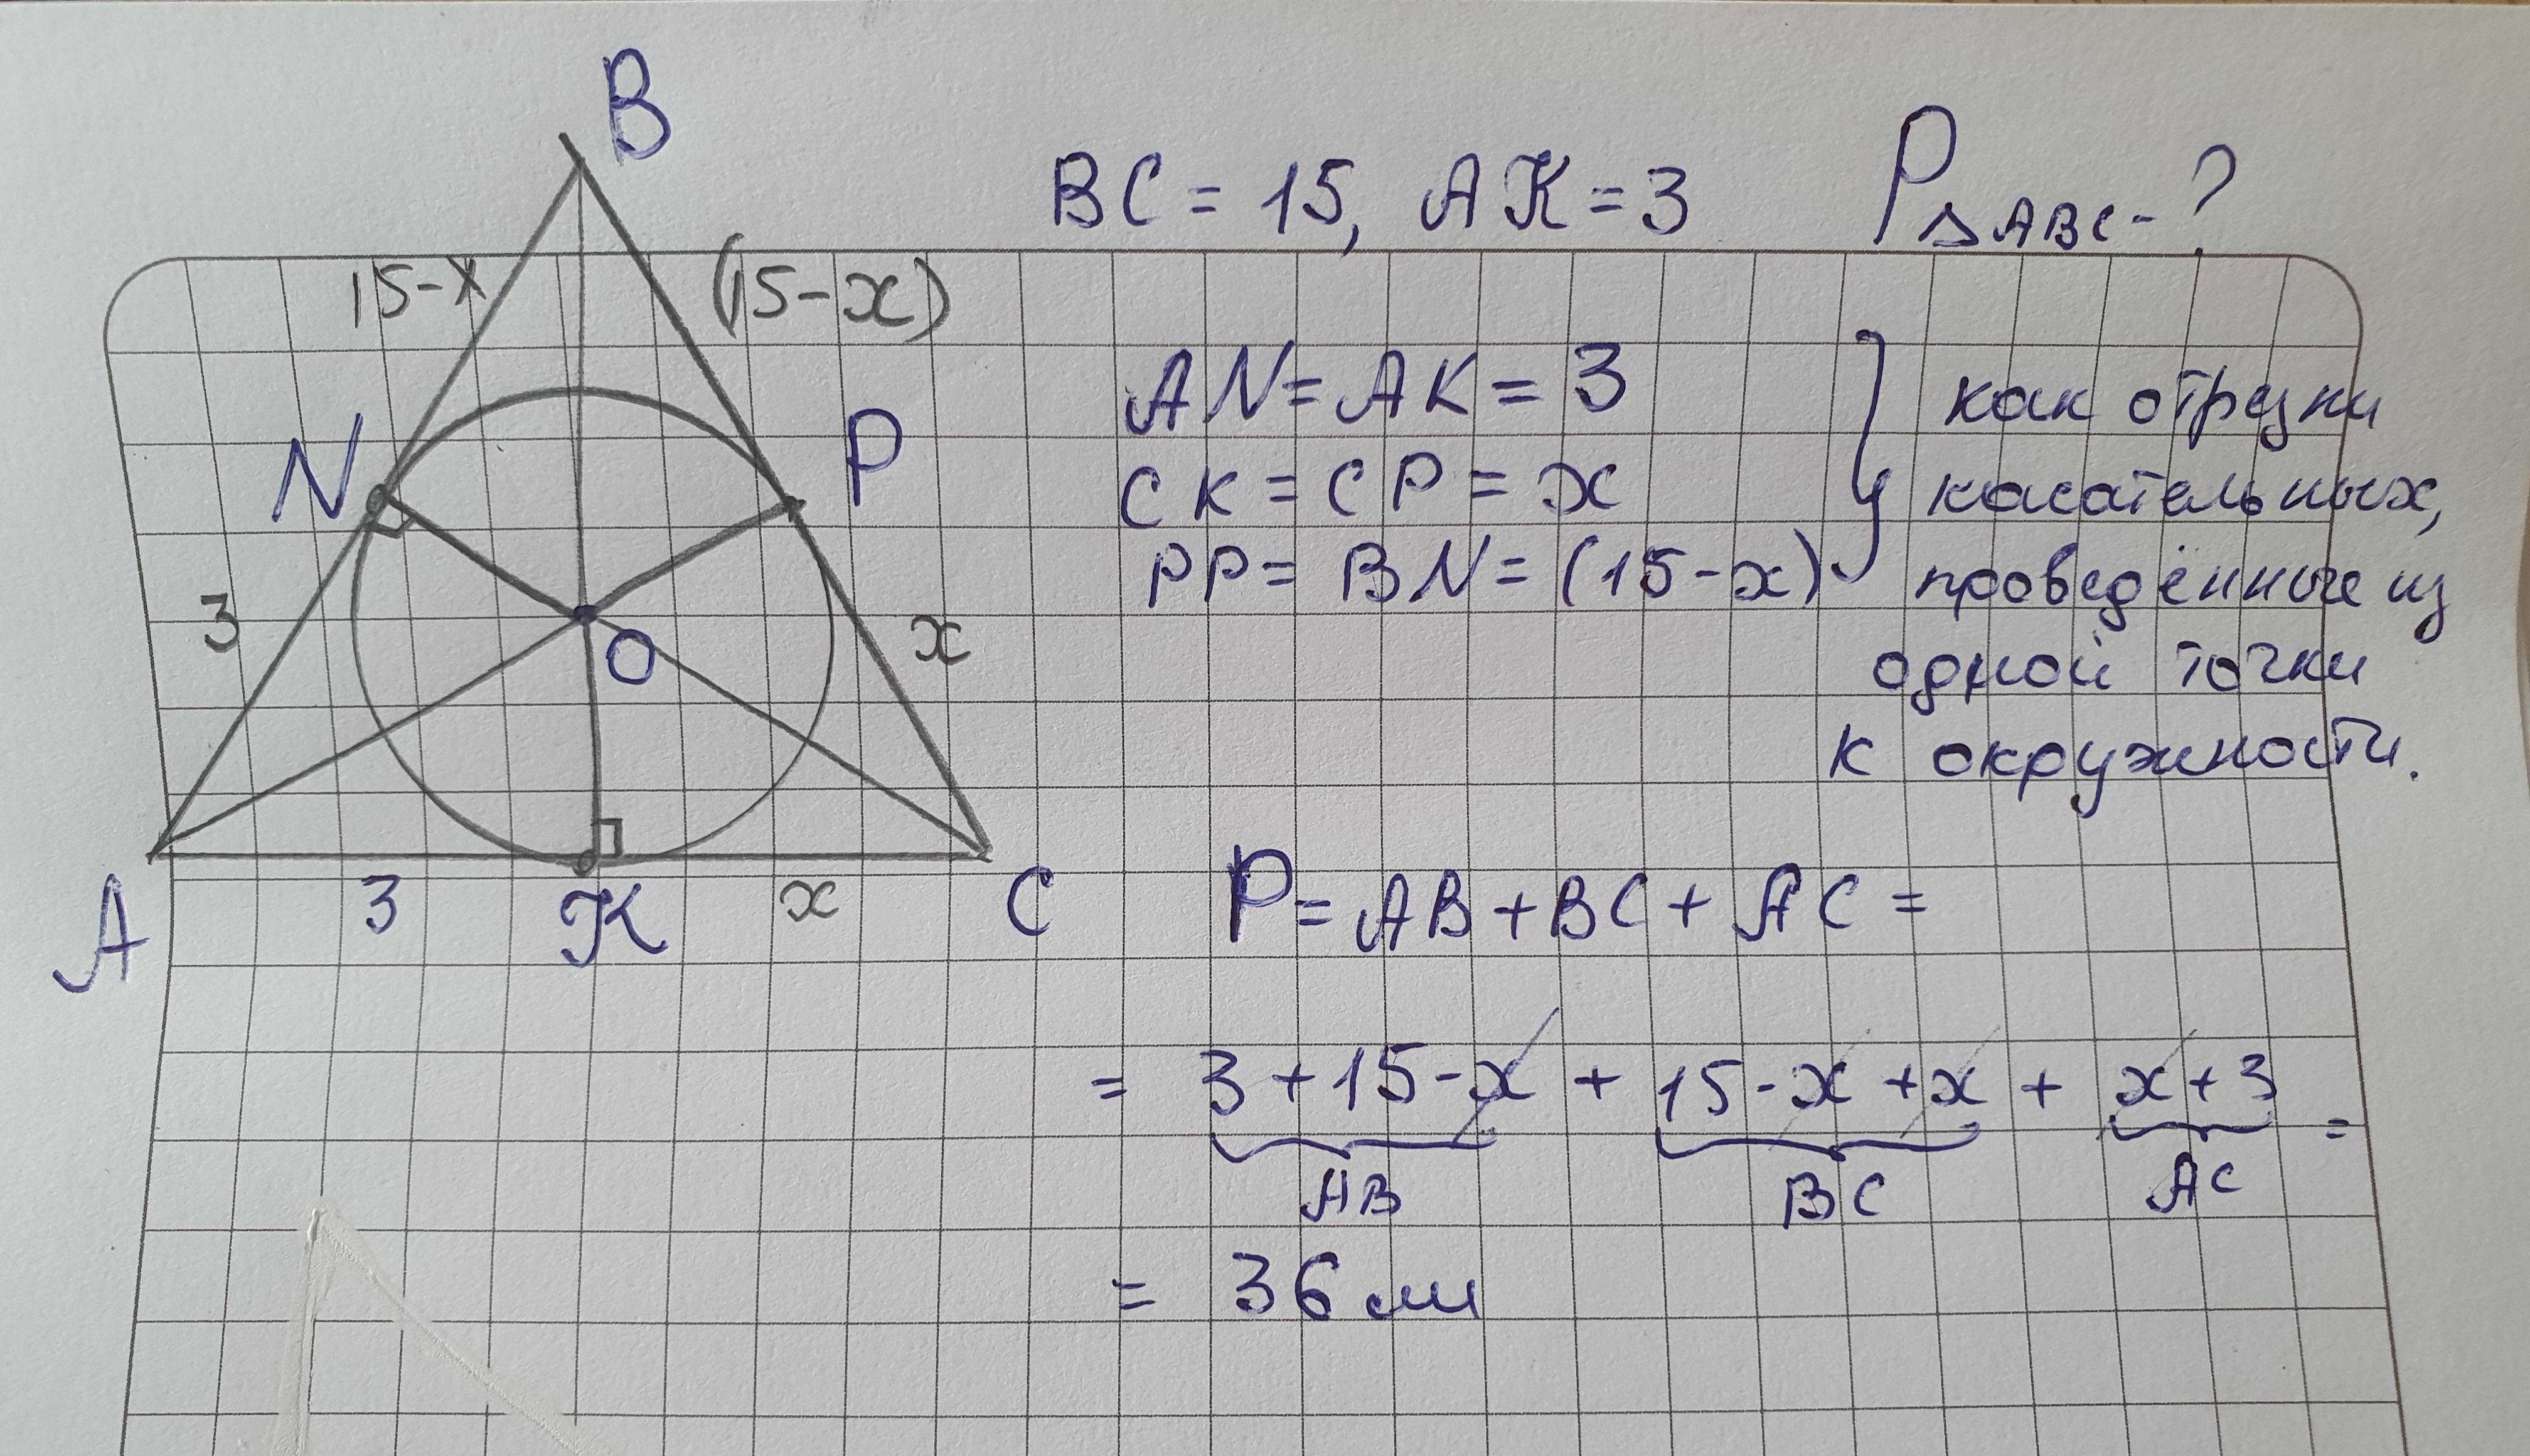 B
BC = 15, AK = 3 P△ABC - ?
15-x (15-x)
N P
AN = AK = 3
CK = CP = x
PP = BN = (15-x)
} как отрезки
касательных,
проведённые из
одной точки
к окружности.
3 O x
A 3 K x C
P = AB + BC + AC =
= 3 + 15 - x + 15 - x + x + x + 3 =
AB BC AC
= 36 см